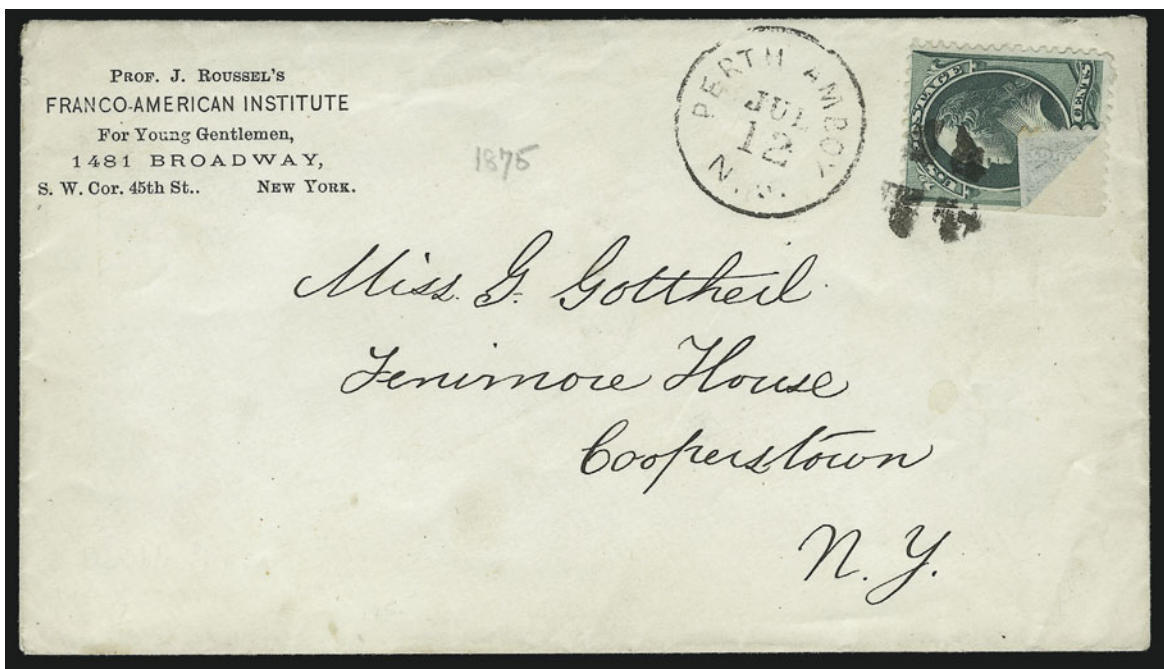 PROF. J. ROUSSEL'S
FRANCO-AMERICAN INSTITUTE
For Young Gentlemen,
1481 BROADWAY,
S. W. Cor. 45th St.. NEW YORK.
1875
PERTH AMBOY
JUL
12
N.J.
POSTAGE
CENTS
U.S.
Miss. G. Gottheil
Fenimore House
Cooperstown
N. Y.